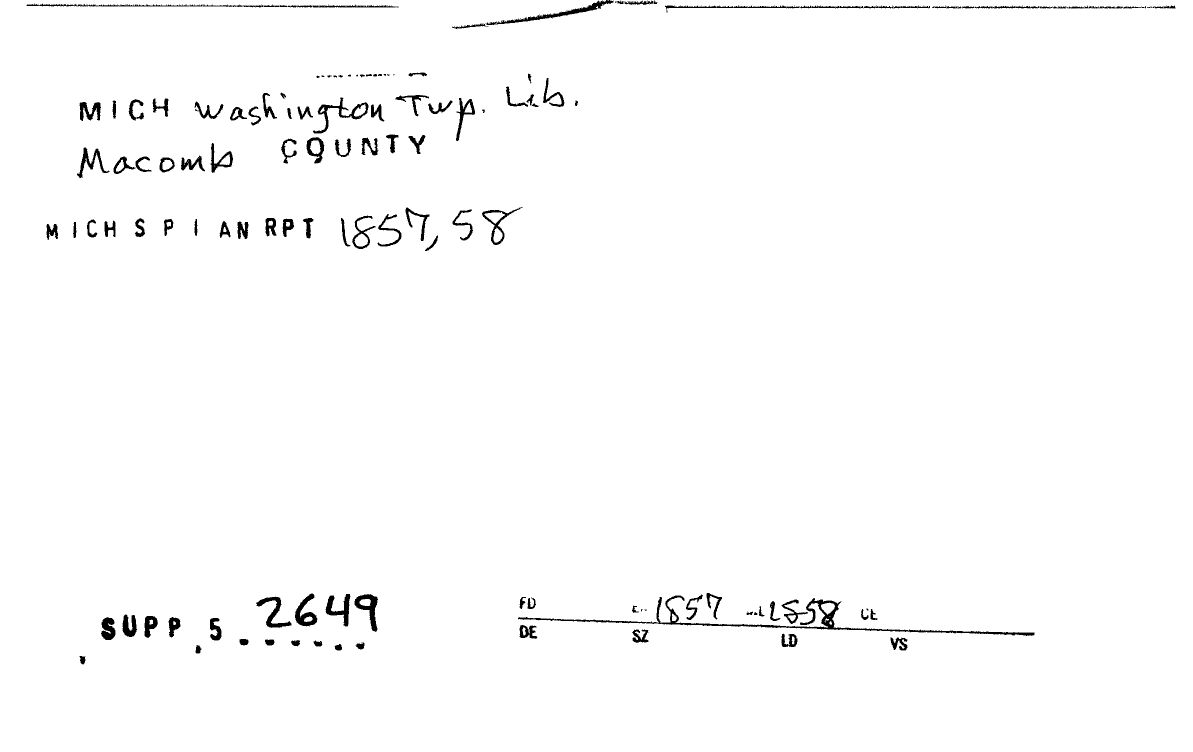 MICH Washington Twp. Lib.
Macomb COUNTY
MICH S P I AN RPT 1857, 58
SUPP 5 2649
FD 1857 1858
DE SZ LD VS